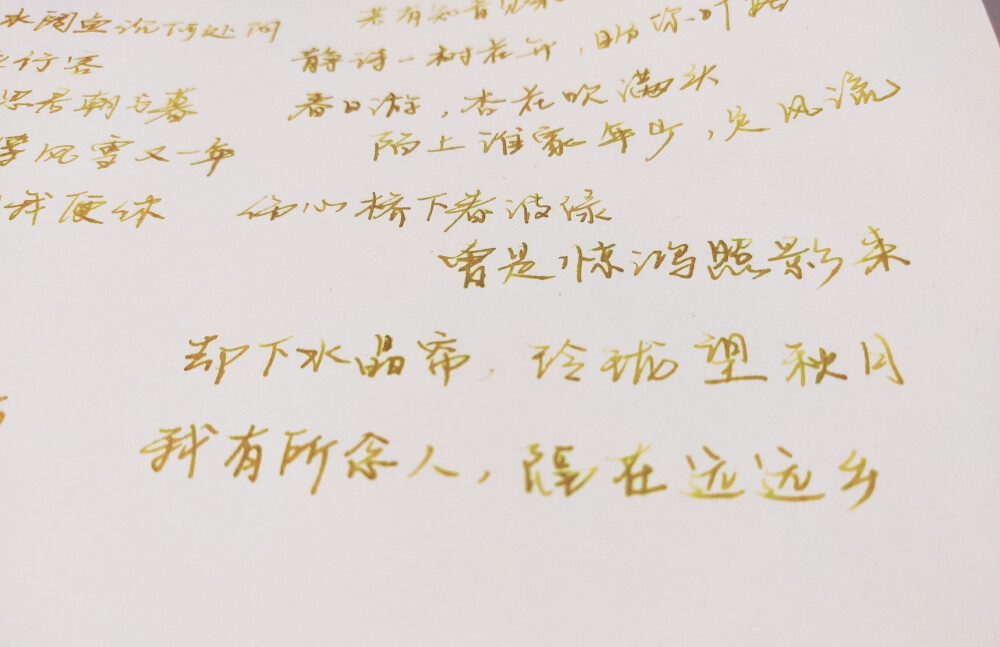 水阔鱼沉何处问 若有知音见采
行客 一树花开，盼你一叶
思君朝与暮 春日游，杏花吹满头
风雪又一年 陌上谁家年少，足风流
我便休 伤心桥下春波绿
曾是惊鸿照影来
却下水晶帘，玲珑望秋月
我有所念人，隔在远远乡